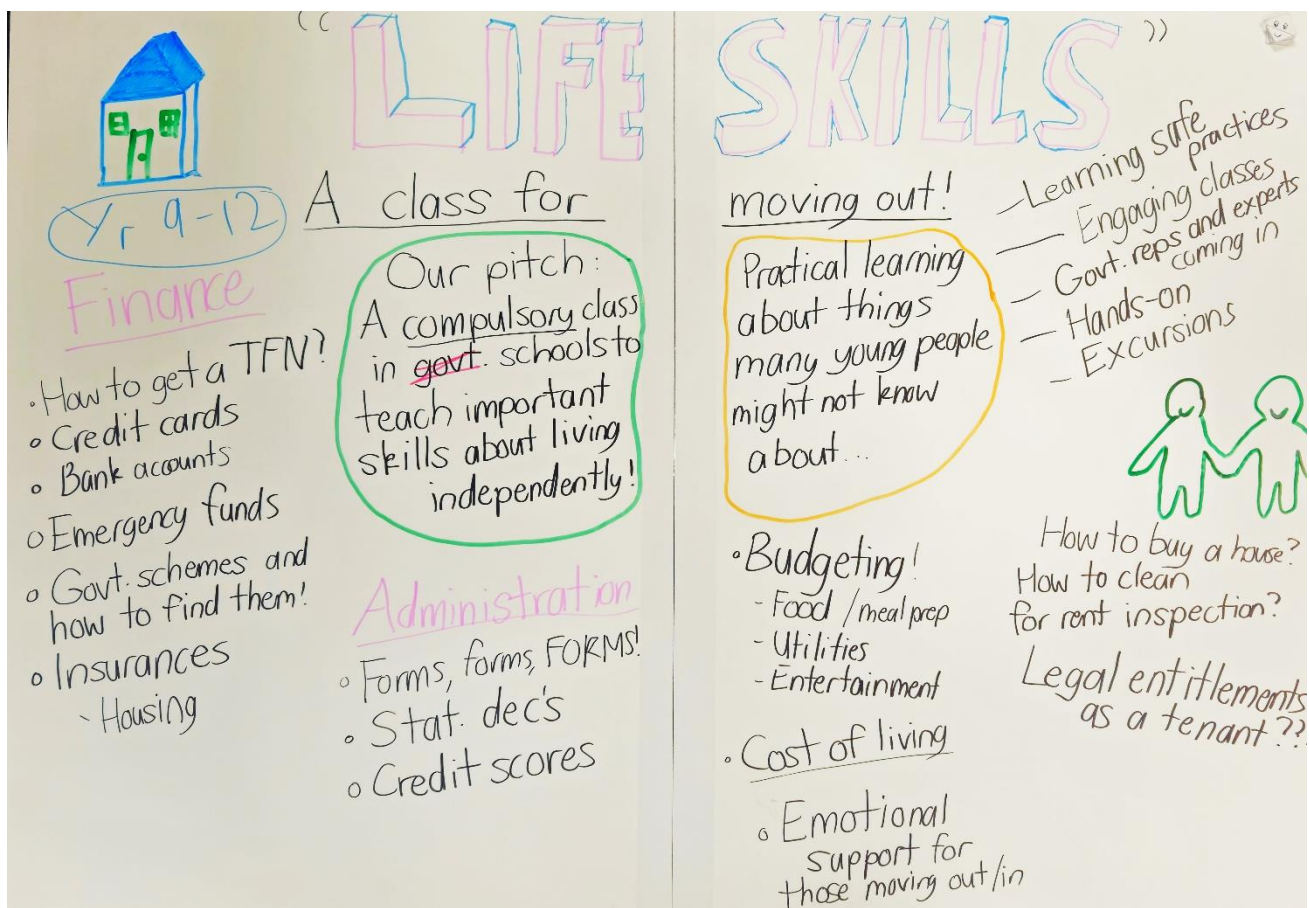 (( LIFE SKILLS ))
A class for moving out!
Yr 9-12
Finance
• How to get a TFN?
• Credit cards
• Bank accounts
• Emergency funds
• Govt. schemes and
how to find them!
• Insurances
- Housing
Our pitch:
A compulsory class
in govt. schools to
teach important
skills about living
independently!
Administration
• Forms, forms, FORMS!
• Stat. dec's
• Credit scores
Practical learning
about things
many young people
might not know
about...
• Budgeting!
- Food / meal prep
- Utilities
- Entertainment
• Cost of living
• Emotional
support for
those moving out/in
- Learning safe
practices
- Engaging classes
- Govt. reps and experts
coming in
- Hands-on
- Excursions
How to buy a house?
How to clean
for rent inspection?
Legal entitlements
as a tenant??